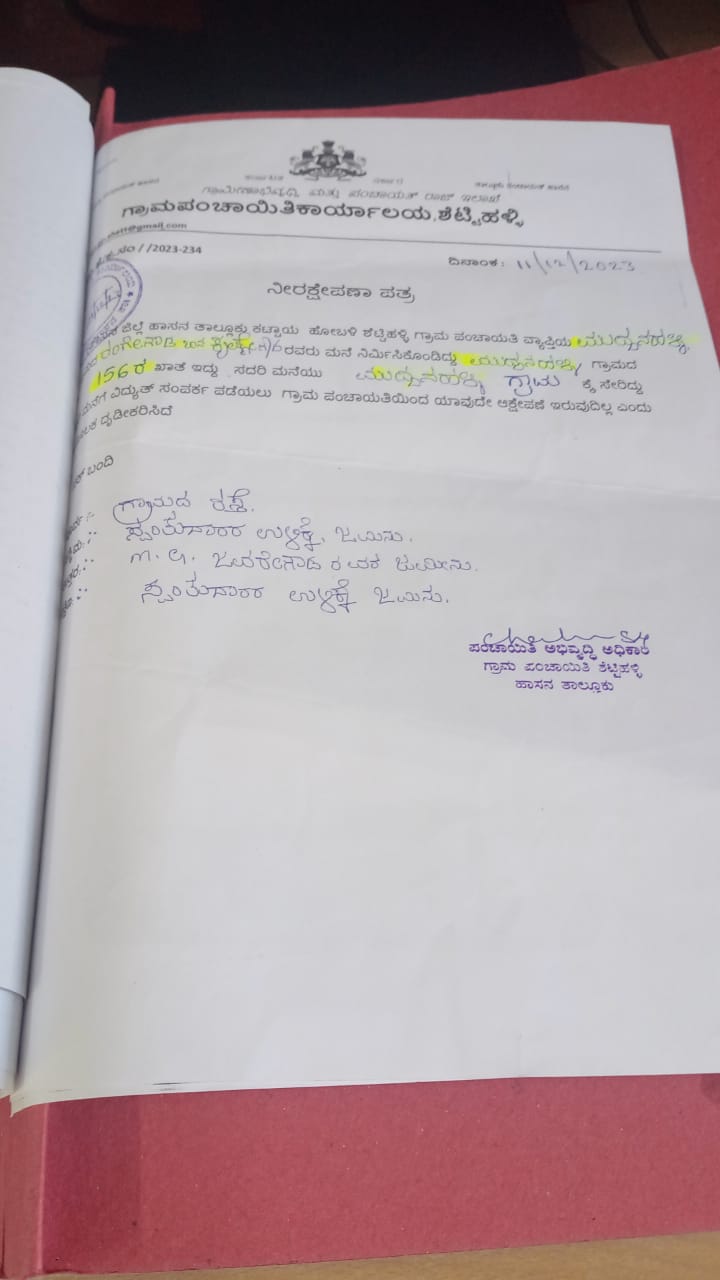 ಗ್ರಾಮೀಣಾಭಿವೃದ್ಧಿ ಮತ್ತು ಪಂಚಾಯತ್ ರಾಜ್ ಇಲಾಖೆ
ಗ್ರಾಮಪಂಚಾಯಿತಿಕಾರ್ಯಾಲಯ,ಶೆಟ್ಟಿಹಳ್ಳಿ
@gmail.com
ಸಂ//2023-234
ದಿನಾಂಕ: 11/12/2023
ನೀರಕ್ಷೇಪಣಾ ಪತ್ರ
ಜಿಲ್ಲೆ ಹಾಸನ ತಾಲ್ಲೂಕು ಕಟ್ಟಾಯ ಹೋಬಳಿ ಶೆಟ್ಟಿಹಳ್ಳಿ ಗ್ರಾಮ ಪಂಚಾಯತಿ ವ್ಯಾಪ್ತಿಯ
ರಂಗೇಗೌಡ ಬಿನ್ ರವರು ಮನೆ ನಿರ್ಮಿಸಿಕೊಂಡಿದ್ದು ಗ್ರಾಮದ
156 ರ ಖಾತೆ ಇದ್ದು ಸದರಿ ಮನೆಯು ಗ್ರಾಮ ಕ್ಕೆ ಸೇರಿದ್ದು
ವಿದ್ಯುತ್ ಸಂಪರ್ಕ ಪಡೆಯಲು ಗ್ರಾಮ ಪಂಚಾಯತಿಯಿಂದ ಯಾವುದೇ ಆಕ್ಷೇಪಣೆ ಇರುವುದಿಲ್ಲ ಎಂದು
ದೃಡೀಕರಿಸಿದೆ
ಬಂದಿ
ಗ್ರಾಮದ ರಸ್ತೆ.
ಸ್ವಂತುದಾರರ ಉಳಿಕೆ ಜಮೀನು.
m. G. ಜವರೇಗೌಡ ರವರ ಜಮೀನು.
ಸ್ವಂತುದಾರರ ಉಳಿಕೆ ಜಮೀನು.
ಪಂಚಾಯಿತಿ ಅಭಿವೃದ್ಧಿ ಅಧಿಕಾರಿ
ಗ್ರಾಮ ಪಂಚಾಯಿತಿ ಶೆಟ್ಟಿಹಳ್ಳಿ
ಹಾಸನ ತಾಲ್ಲೂಕು